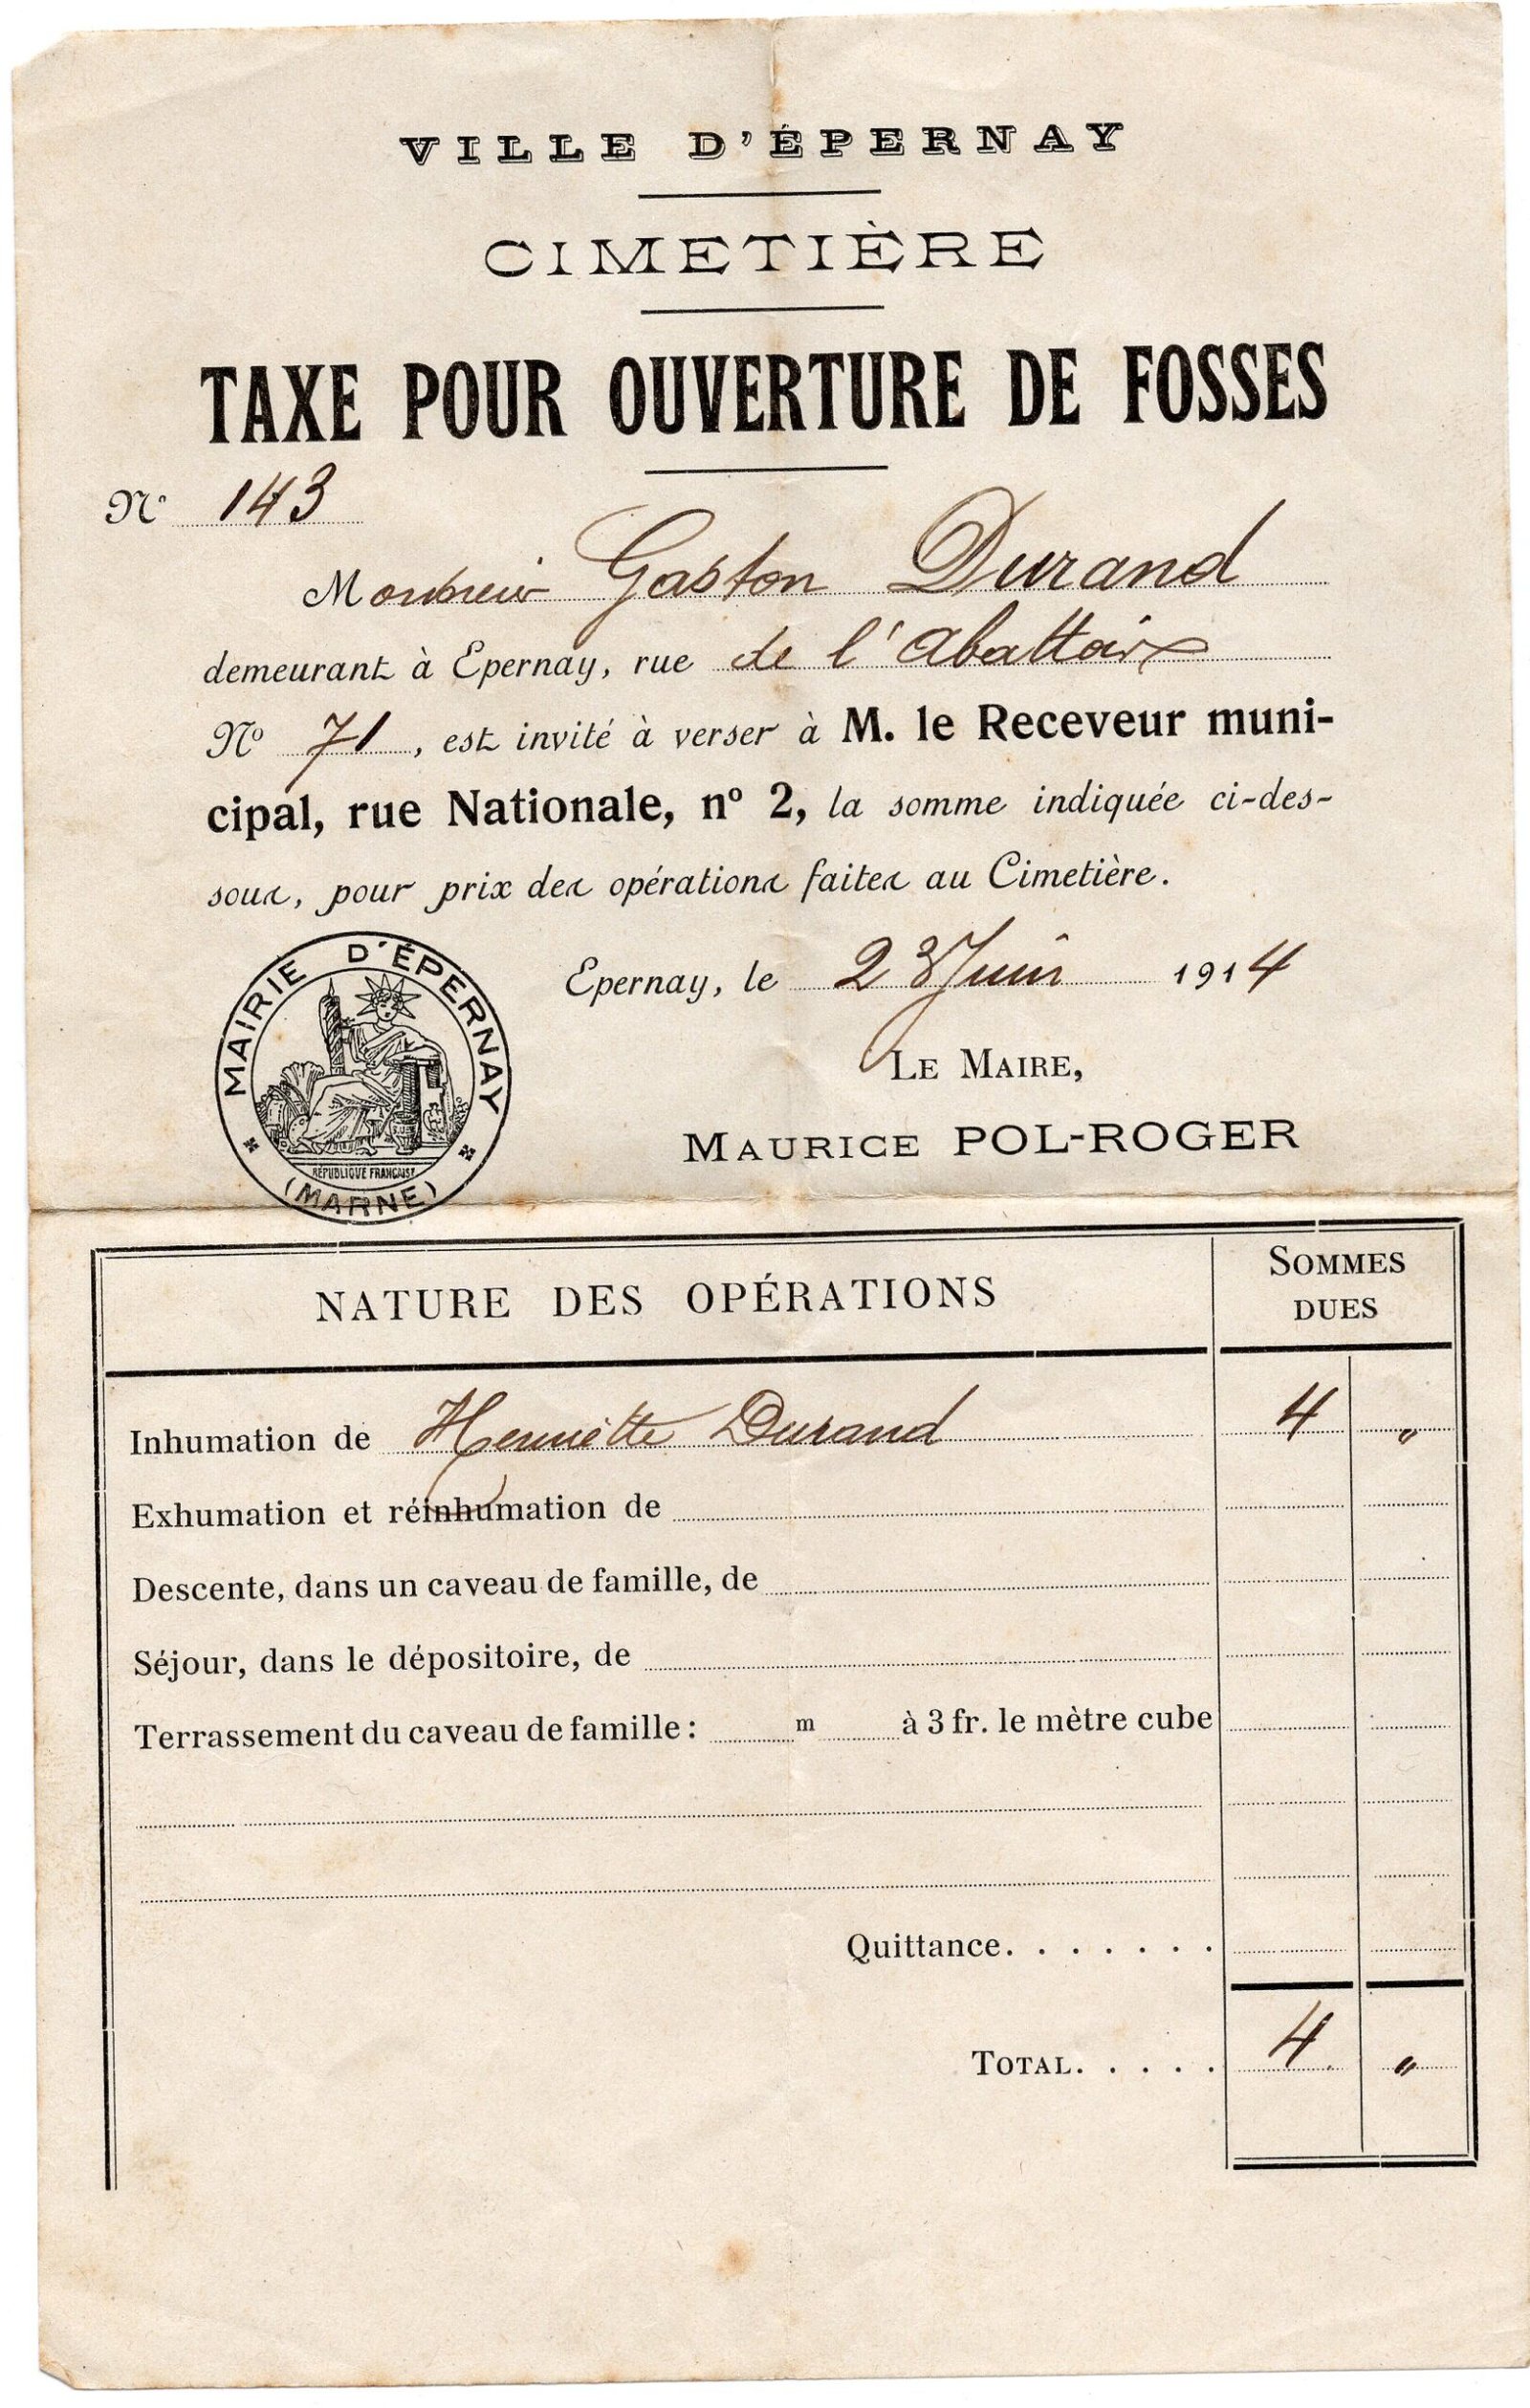 VILLE D'ÉPERNAY
CIMETIÈRE
TAXE POUR OUVERTURE DE FOSSES
N° 143
Monsieur Gaston Durand
demeurant à Epernay, rue de l'Abattoir
N° 71, est invité à verser à M. le Receveur muni-
cipal, rue Nationale, n° 2, la somme indiquée ci-des-
sous, pour prix des opérations faites au Cimetière.
Epernay, le 23 Juin 1914
LE MAIRE,
MAURICE POL-ROGER
MAIRIE D'ÉPERNAY
RÉPUBLIQUE FRANÇAISE
(MARNE)
NATURE DES OPÉRATIONS SOMMES
DUES
Inhumation de Henriette Durand 4 "
Exhumation et réinhumation de
Descente, dans un caveau de famille, de
Séjour, dans le dépositoire, de
Terrassement du caveau de famille : m à 3 fr. le mètre cube
Quittance. . . . . . .
TOTAL. . . . . 4 "